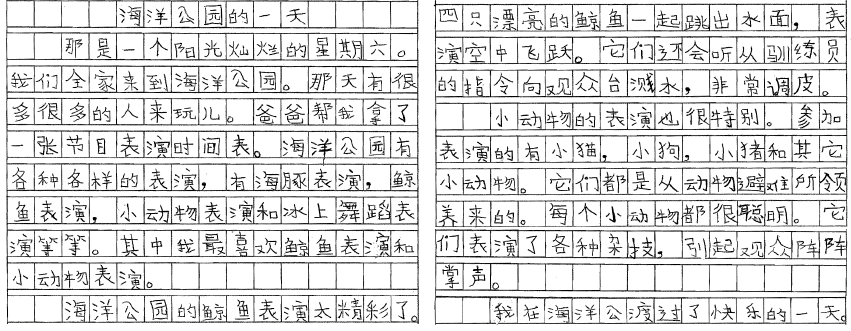 海洋公园的一天
那是一个阳光灿烂的星期六。
我们全家来到海洋公园。那天有很
多很多的人来玩儿。爸爸帮我拿了
一张节目表演时间表。海洋公园有
各种各样的表演，有海豚表演，鲸
鱼表演，小动物表演和冰上舞蹈表
演等等。其中我最喜欢鲸鱼表演和
小动物表演。
海洋公园的鲸鱼表演太精彩了。
四只漂亮的鲸鱼一起跳出水面，表
演空中飞跃。它们还会听从驯练员
的指令向观众台溅水，非常调皮。
小动物的表演也很特别。参加
表演的有小猫，小狗，小猪和其它
小动物。它们都是从动物避难所领
养来的。每个小动物都很聪明。它
们表演了各种杂技，引起观众阵阵
掌声。
我在海洋公渡过了快乐的一天。